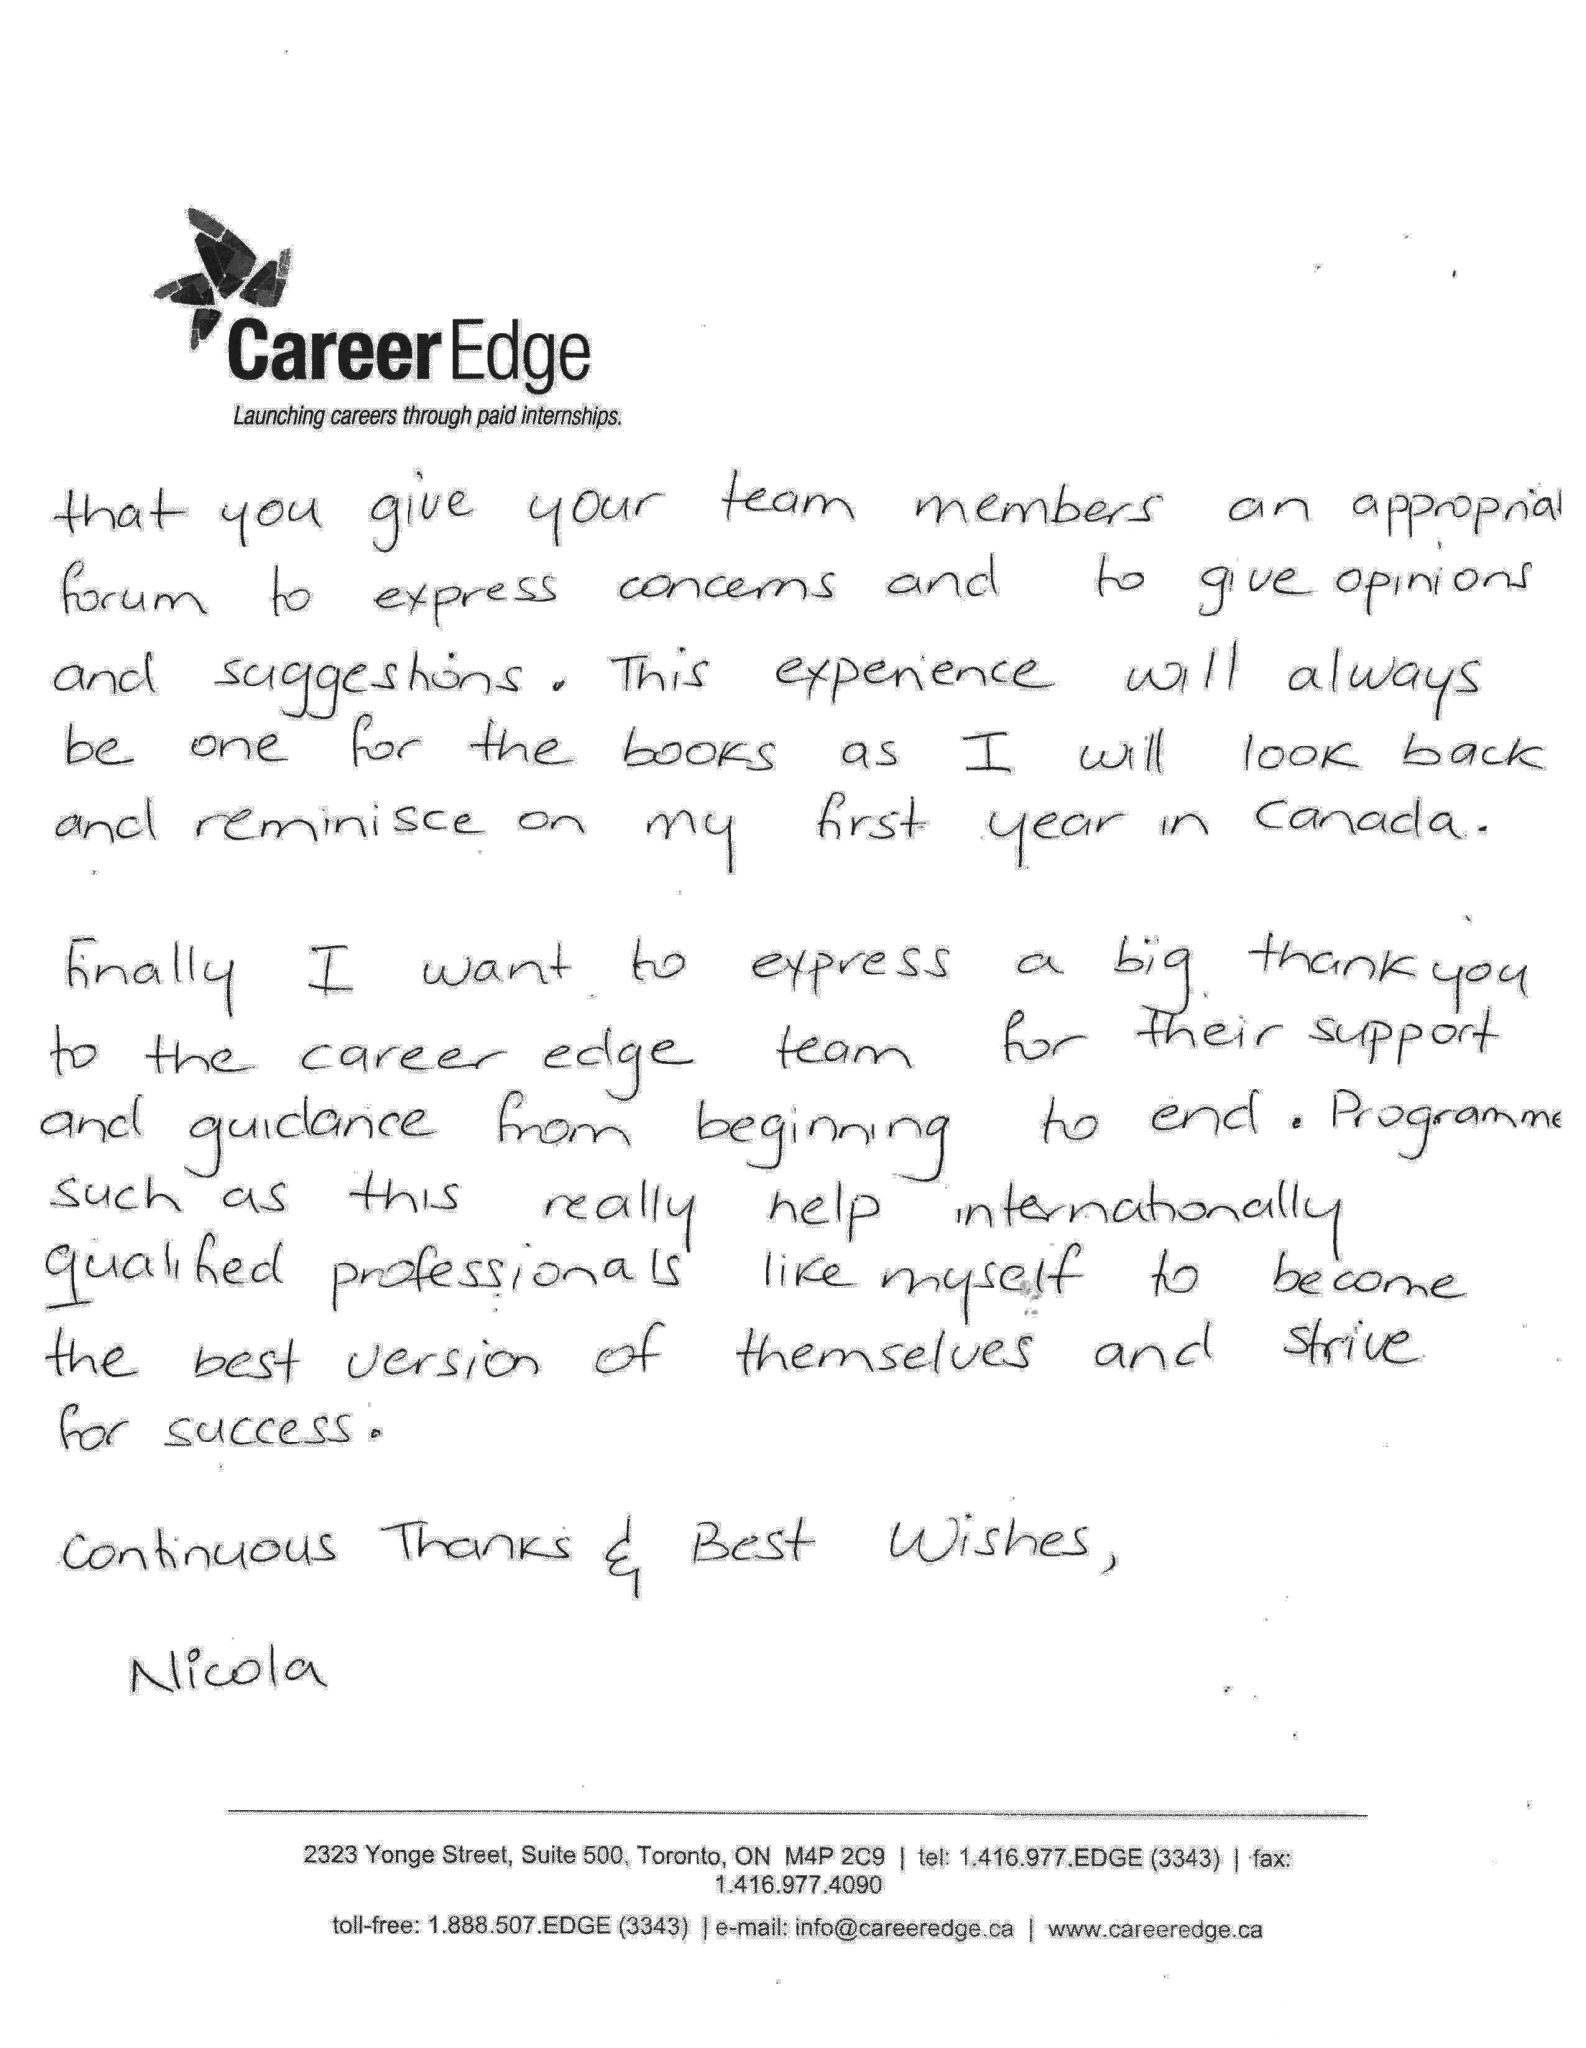 CareerEdge
Launching careers through paid internships.
that you give your team members an appropriat
forum to express concerns and to give opinions
and suggestions. This experience will always
be one for the books as I will look back
and reminisce on my first year in Canada.
Finally I want to express a big thank you
to the career edge team for their support
and guidance from beginning to end. Programme
such as this really help internationally
qualified professionals like myself to become
the best version of themselves and strive
for success.
Continuous Thanks & Best Wishes,
Nicola
2323 Yonge Street, Suite 500, Toronto, ON M4P 2C9 | tel: 1.416.977.EDGE (3343) | fax:
1.416.977.4090
toll-free: 1.888.507.EDGE (3343) | e-mail: info@careeredge.ca | www.careeredge.ca